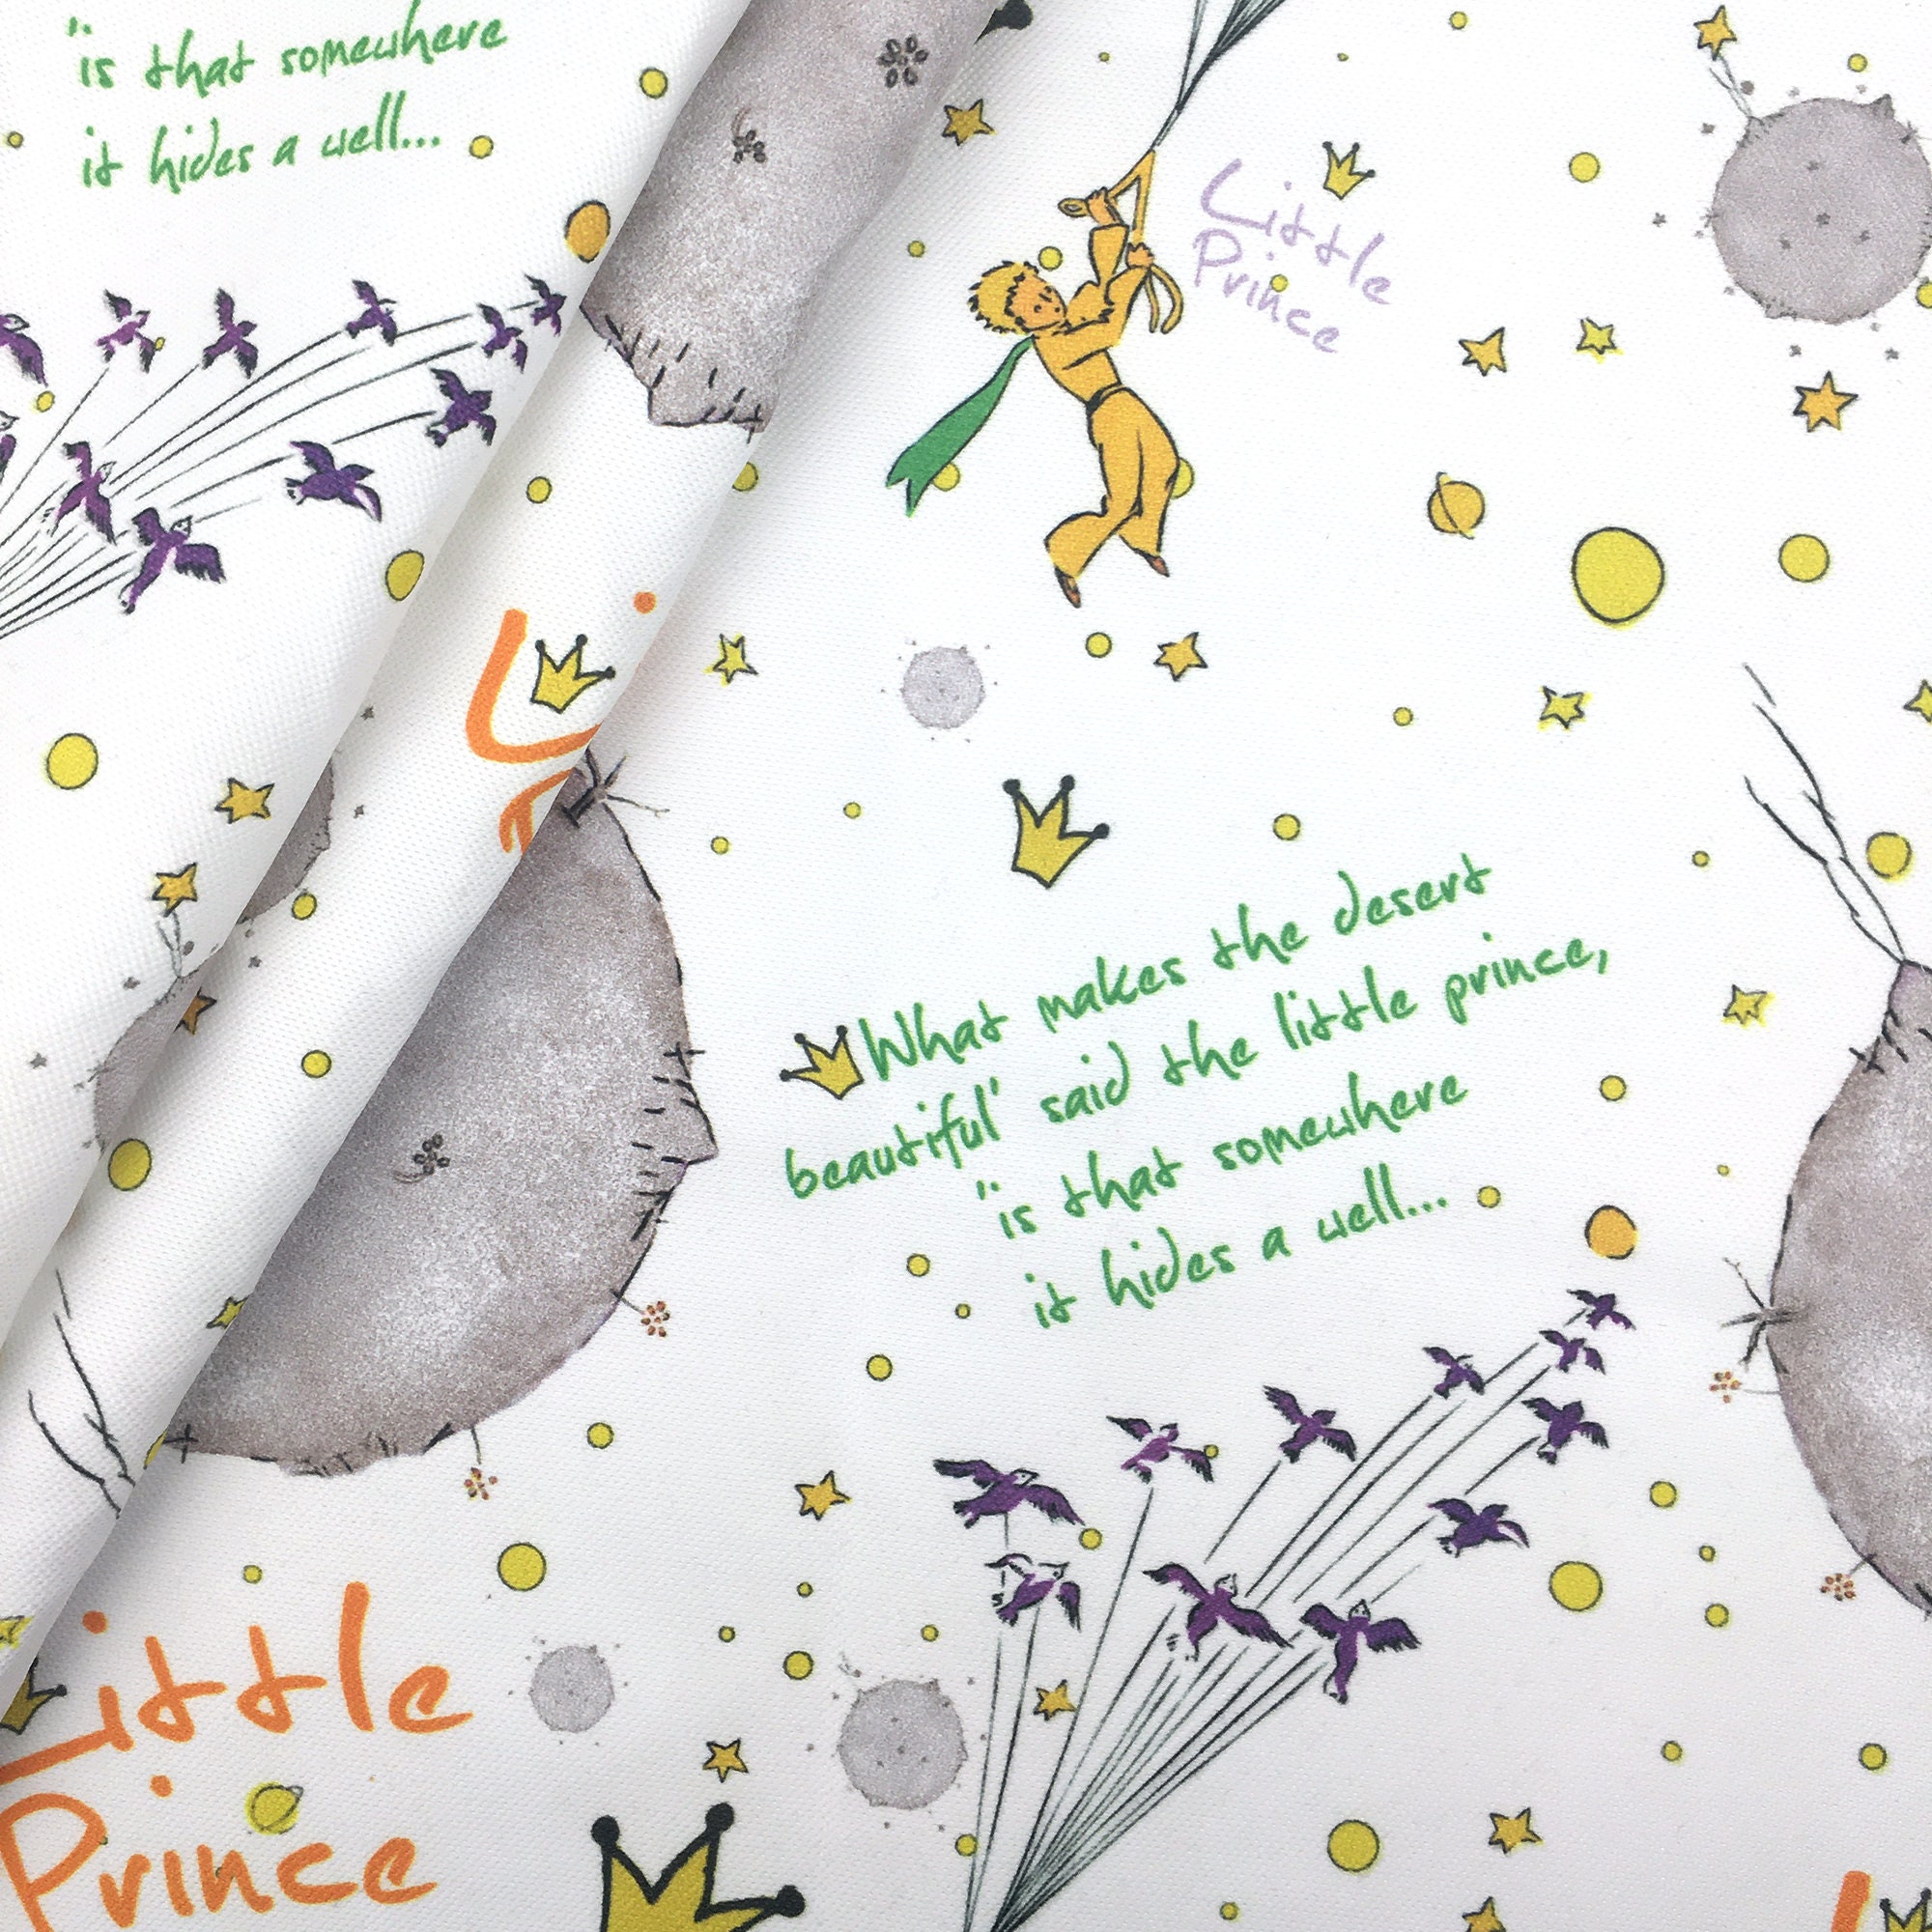 "is that somewhere
it hides a well...
Little
Prince
What makes the desert
beautiful' said the little prince,
"is that somewhere
it hides a well...
Little
Prince